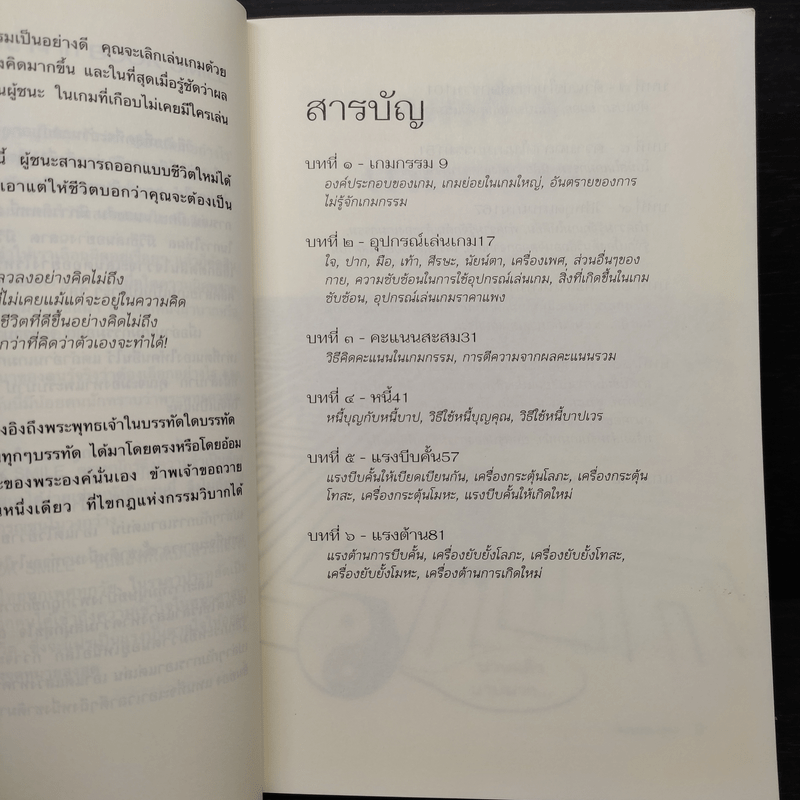 รมเป็นอย่างดี คุณจะเลิกเล่นเกมด้วย
งคิดมากขึ้น และในที่สุดเมื่อรู้ชัดว่าผล
นผู้ชนะ ในเกมที่เกือบไม่เคยมีใครเล่น
นี้ ผู้ชนะสามารถออกแบบชีวิตใหม่ได้
เอาแต่ให้ชีวิตบอกว่าคุณจะต้องเป็น
ลวลงอย่างคิดไม่ถึง
ที่ไม่เคยแม้แต่จะอยู่ในความคิด
ชีวิตที่ดีขึ้นอย่างคิดไม่ถึง
กว่าที่คิดว่าตัวเองจะทำได้!
งอิงถึงพระพุทธเจ้าในบรรทัดใดบรรทัด
นทุกๆบรรทัด ได้มาโดยตรงหรือโดยอ้อม
ะของพระองค์นั่นเอง ข้าพเจ้าขอถวาย
นหนึ่งเดียว ที่ไขกฎแห่งกรรมวิบากได้
สารบัญ
บทที่ ๑ - เกมกรรม 9
องค์ประกอบของเกม, เกมย่อยในเกมใหญ่, อันตรายของการ
ไม่รู้จักเกมกรรม
บทที่ ๒ - อุปกรณ์เล่นเกม17
ใจ, ปาก, มือ, เท้า, ศีรษะ, นัยน์ตา, เครื่องเพศ, ส่วนอื่นๆของ
กาย, ความซับซ้อนในการใช้อุปกรณ์เล่นเกม, สิ่งที่เกิดขึ้นในเกม
ซับซ้อน, อุปกรณ์เล่นเกมราคาแพง
บทที่ ๓ - คะแนนสะสม31
วิธีคิดคะแนนในเกมกรรม, การตีความจากผลคะแนนรวม
บทที่ ๔ - หนี้41
หนี้บุญกับหนี้บาป, วิธีใช้หนี้บุญคุณ, วิธีใช้หนี้บาปเวร
บทที่ ๕ - แรงบีบคั้น57
แรงบีบคั้นให้เบียดเบียนกัน, เครื่องกระตุ้นโลภะ, เครื่องกระตุ้น
โทสะ, เครื่องกระตุ้นโมหะ, แรงบีบคั้นให้เกิดใหม่
บทที่ ๖ - แรงต้าน81
แรงต้านการบีบคั้น, เครื่องยับยั้งโลภะ, เครื่องยับยั้งโทสะ,
เครื่องยับยั้งโมหะ, เครื่องต้านการเกิดใหม่